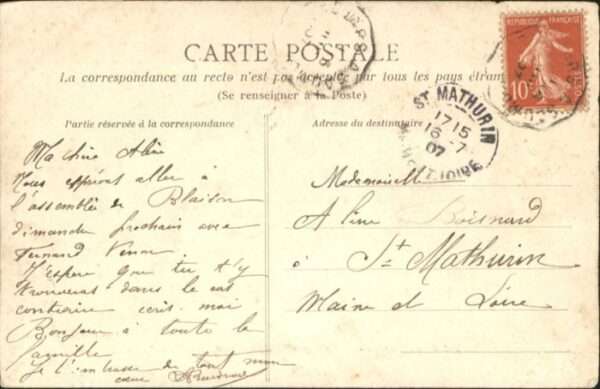 CARTE POSTALE
La correspondance au recto n'est pas acceptée par tous les pays étran
(Se renseigner à la Poste)
Partie réservée à la correspondance
Adresse du destinataire
REPUBLIQUE FRANÇAISE
10
ST MATHURIN
17 15
16-7
07
LOIRE
Ma chère Aline
Nous espérons aller à
l'assemblée de Blaison
dimanche prochain avec
Fernand
J'espère que tu t'y
trouveras dans le cas
contraire écris moi
Bonjour à toute la
famille
Je t'embrasse de tout mon
cœur
Mademoiselle
Aline
à St Mathurin
Maine et Loire